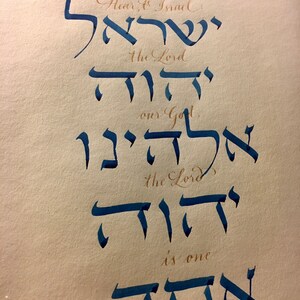 Hear, O Israel
ישראל
the Lord
יהוה
our God
אלהינו
the Lord
יהוה
is one
אחד